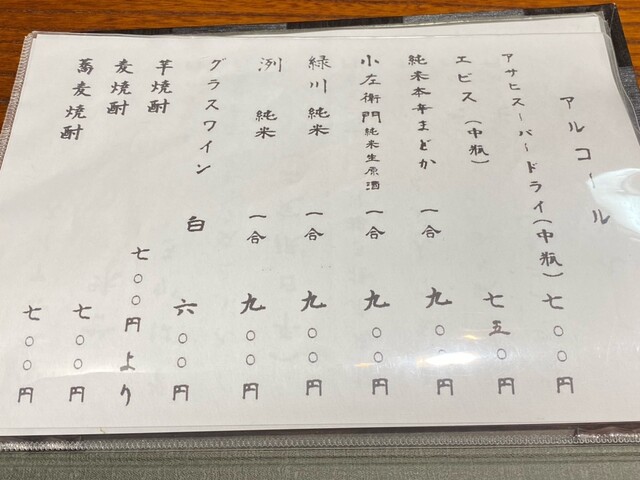 アルコール
アサヒスーパードライ(中瓶) 七〇〇円
エビス(中瓶) 七五〇円
純米本年まどか 一合 九〇〇円
小左衛門純米生原酒 一合 九〇〇円
緑川 純米 一合 九〇〇円
洌 純米 一合 九〇〇円
グラスワイン 白 六〇〇円
芋焼酎 七〇〇円より
麦焼酎 七〇〇円
蕎麦焼酎 七〇〇円